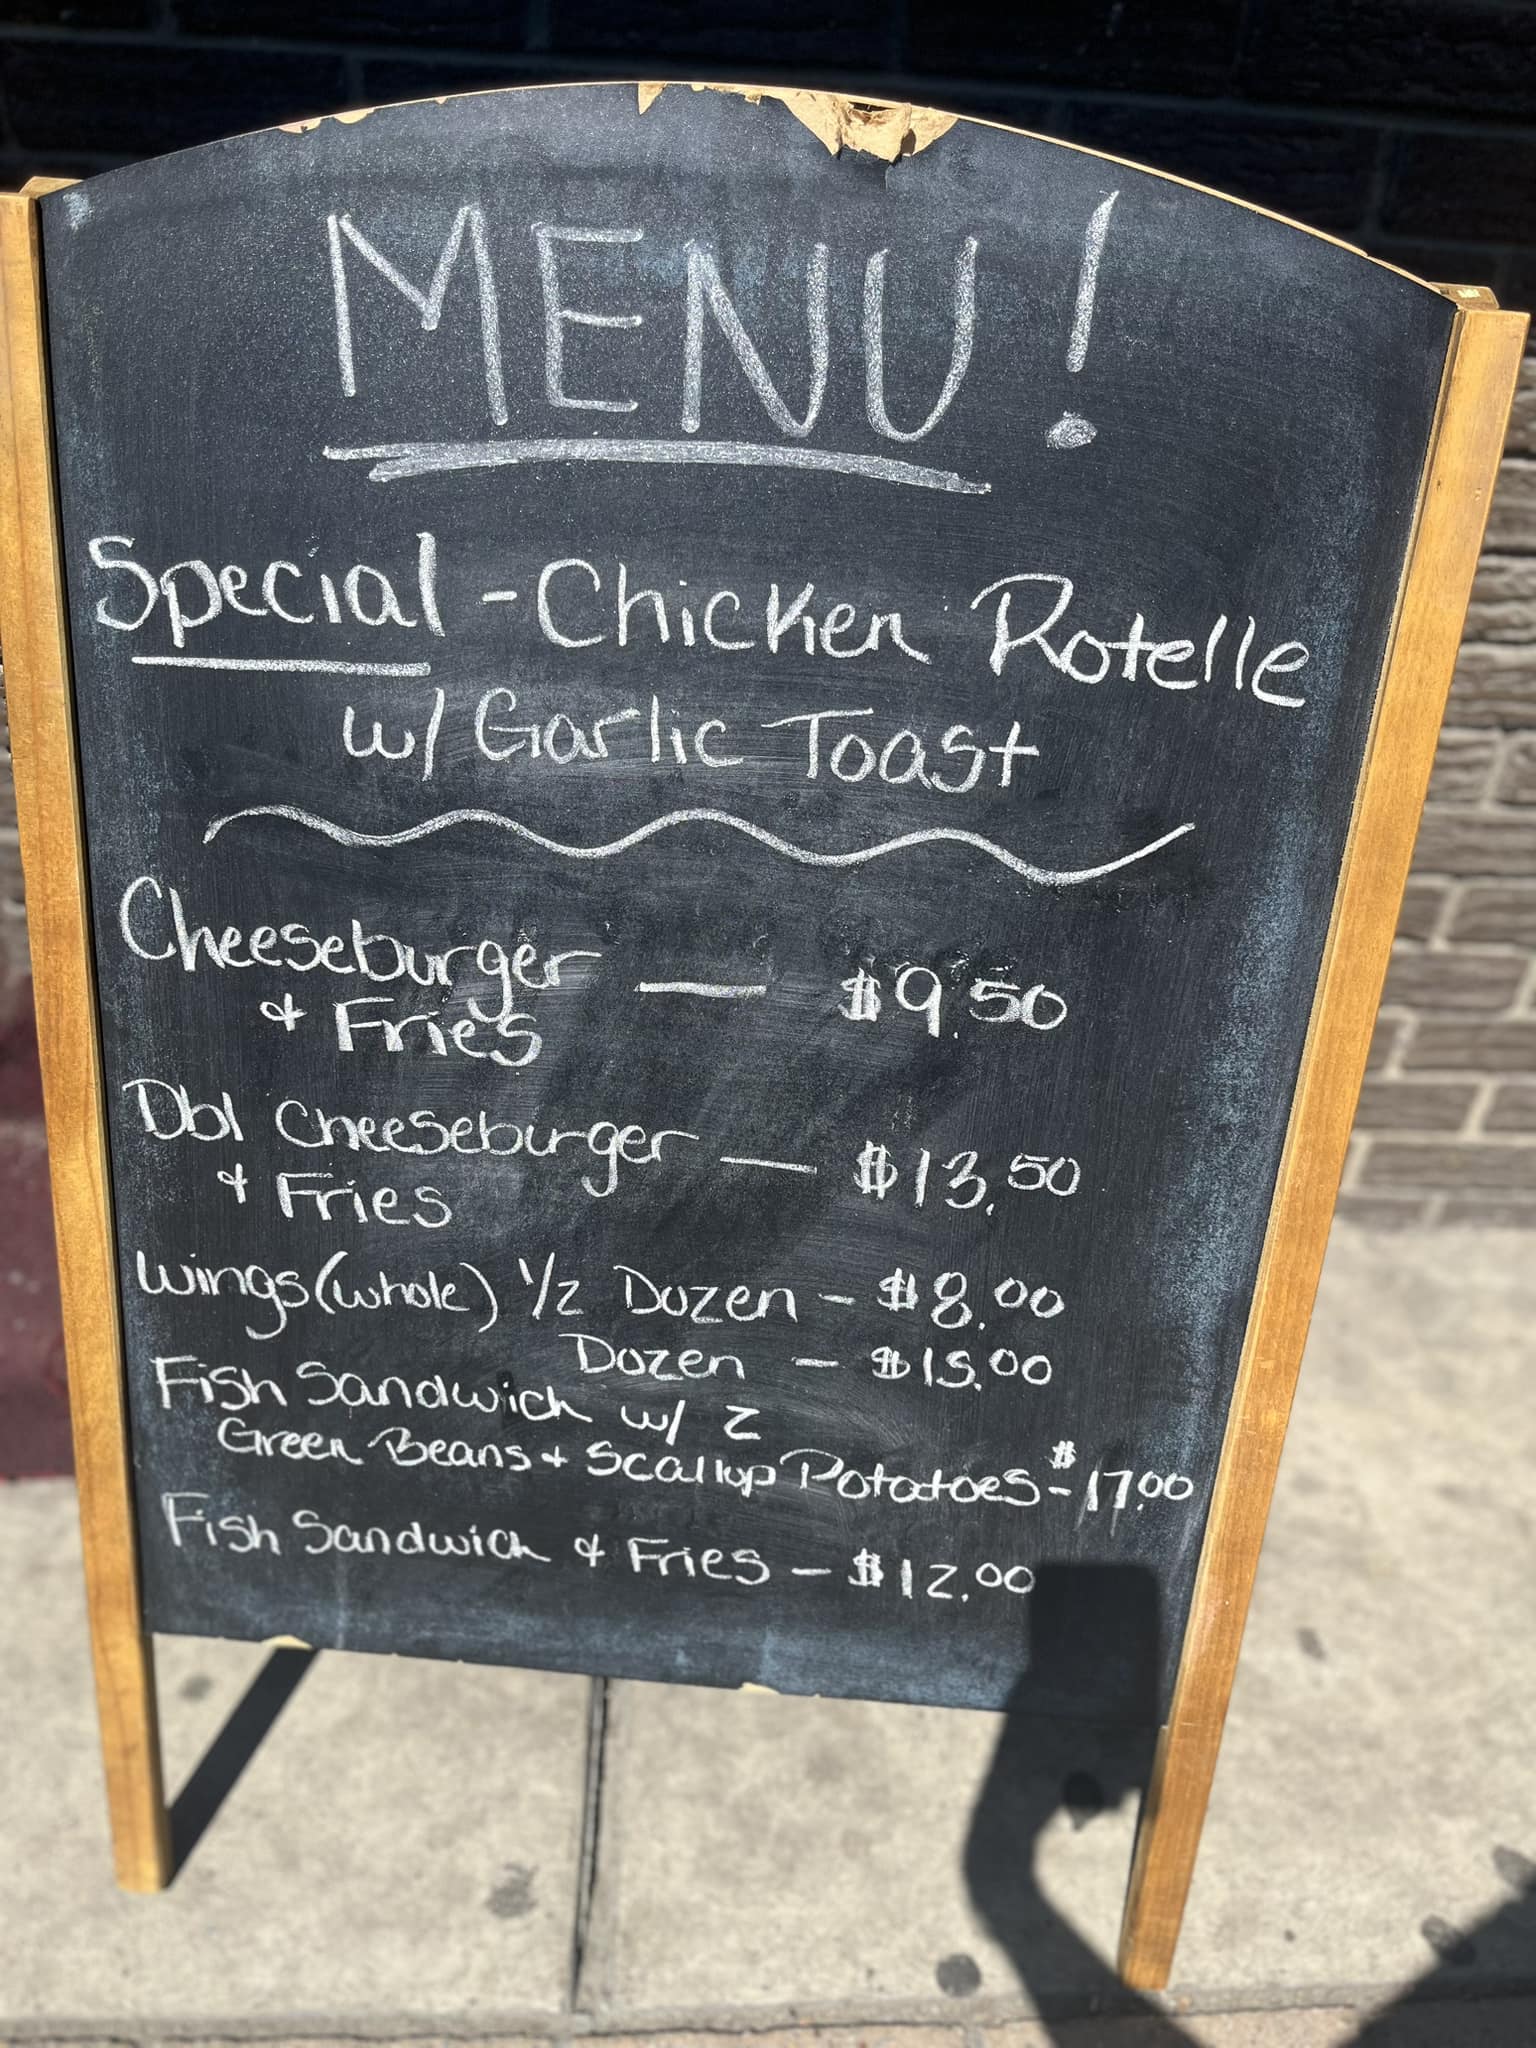 MENU!
Special - Chicken Rotelle
w/ Garlic Toast
Cheeseburger — $9.50
& Fries
Dbl Cheeseburger — $13.50
& Fries
Wings (whole) 1/2 Dozen - $8.00
Dozen - $15.00
Fish Sandwich w/ 2
Green Beans & Scallop Potatoes - $17.00
Fish Sandwich & Fries - $12.00